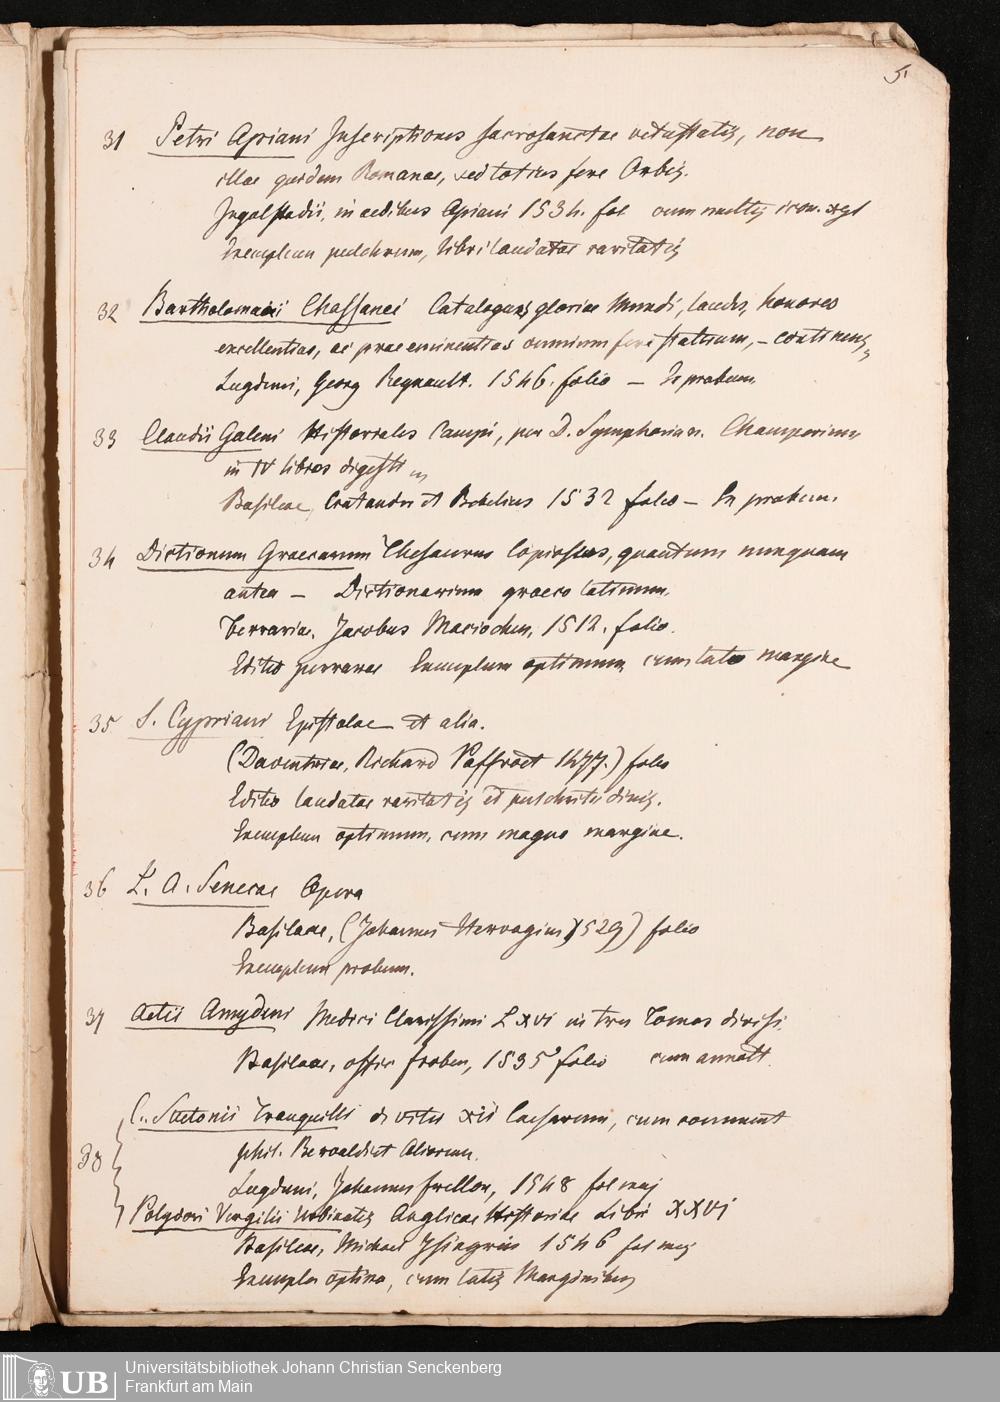 5.
31 Petri Apiani Inscriptiones sacrosanctae vetustatis, non
illae quidem Romanae, sed totius fere Orbis.
Ingolstadii, in aedibus Apiani 1534. fol cum multis icon. xyl
Exemplum pulchrum, libri laudatae raritatis
32 Bartholomaei Chassanei Catalogus gloriae Mundi, laudes, honores
excellentias, ac praeeminentias omnium fere statuum, – continens,
Lugduni, Georg Regnault. 1546. folio – Ex probum
33 Claudii Galeni Historiales Campi, per D. Symphorian. Champerium
in IV libros digesti
Basileae, Cratander et Bebelius 1532 folio – Ex probum.
34 Dictionum Graecarum Thesaurus Copiosus, quantum nunquam
antea – Dictionarium graeco latinum.
Ferrariae, Jacobus Maciochus, 1512. folio.
Editio perrarae Exemplum optimum cum lato margine
35 S. Cypriani Epistolae et alia.
(Daventriae, Richard Paffroet 1477.) folio
Editio laudatae raritatis et pulchritudinis.
Exemplum optimum, cum magno margine.
36 L. A. Senecae Opera
Basileae, (Johannes Hervagius, 1529) folio
Exemplum probum.
37 Aetii Amydeni Medici Clarissimi L XVI in tres Tomos divisi.
Basileae, offic froben, 1535 folio cum annott.
38 C. Suetonii Tranquilli de vitis XII Caesarum, cum comment
phil. Beroaldi et Aliorum.
Lugduni, Johannes frellon, 1548 fol maj
Polydori Vergilii Urbinatis Anglicae Historiae Libri XXVI
Basileae, Michael Isingrin 1546 fol maj
Exempla optima, cum latis Marginibus
UB Universitätsbibliothek Johann Christian Senckenberg
Frankfurt am Main